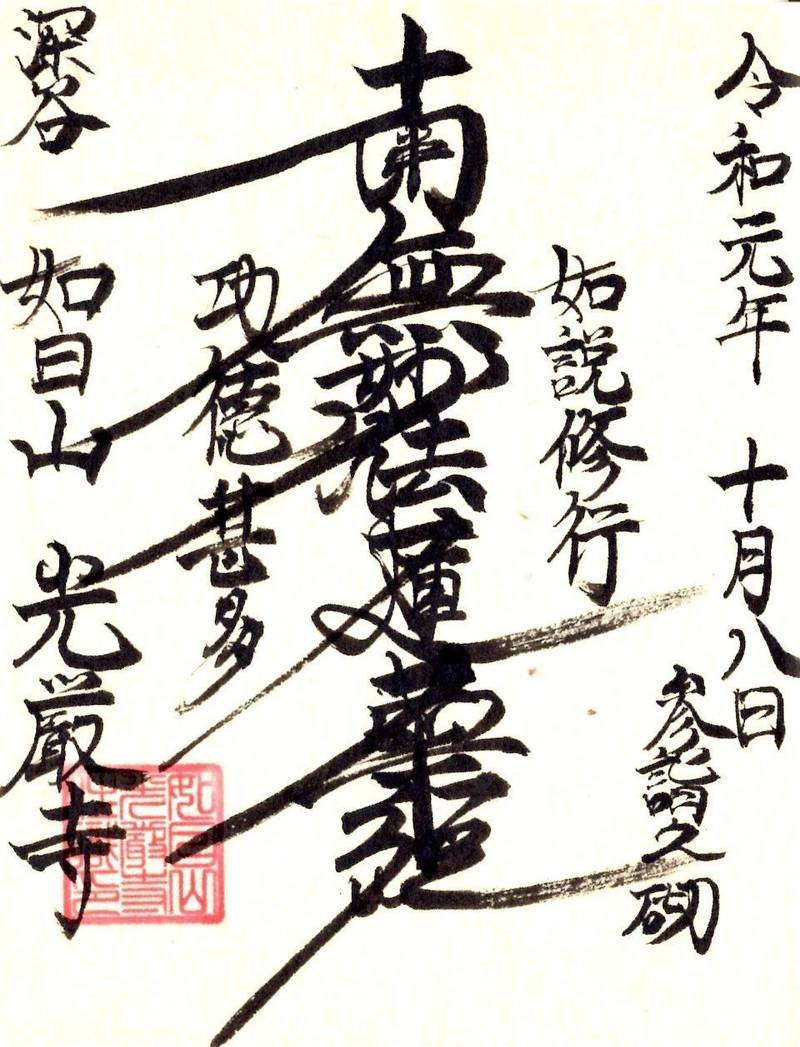 令和元年 十月八日
参詣之砌
如説修行
南無妙法蓮華経
功徳甚多
深谷
如日山 光厳寺